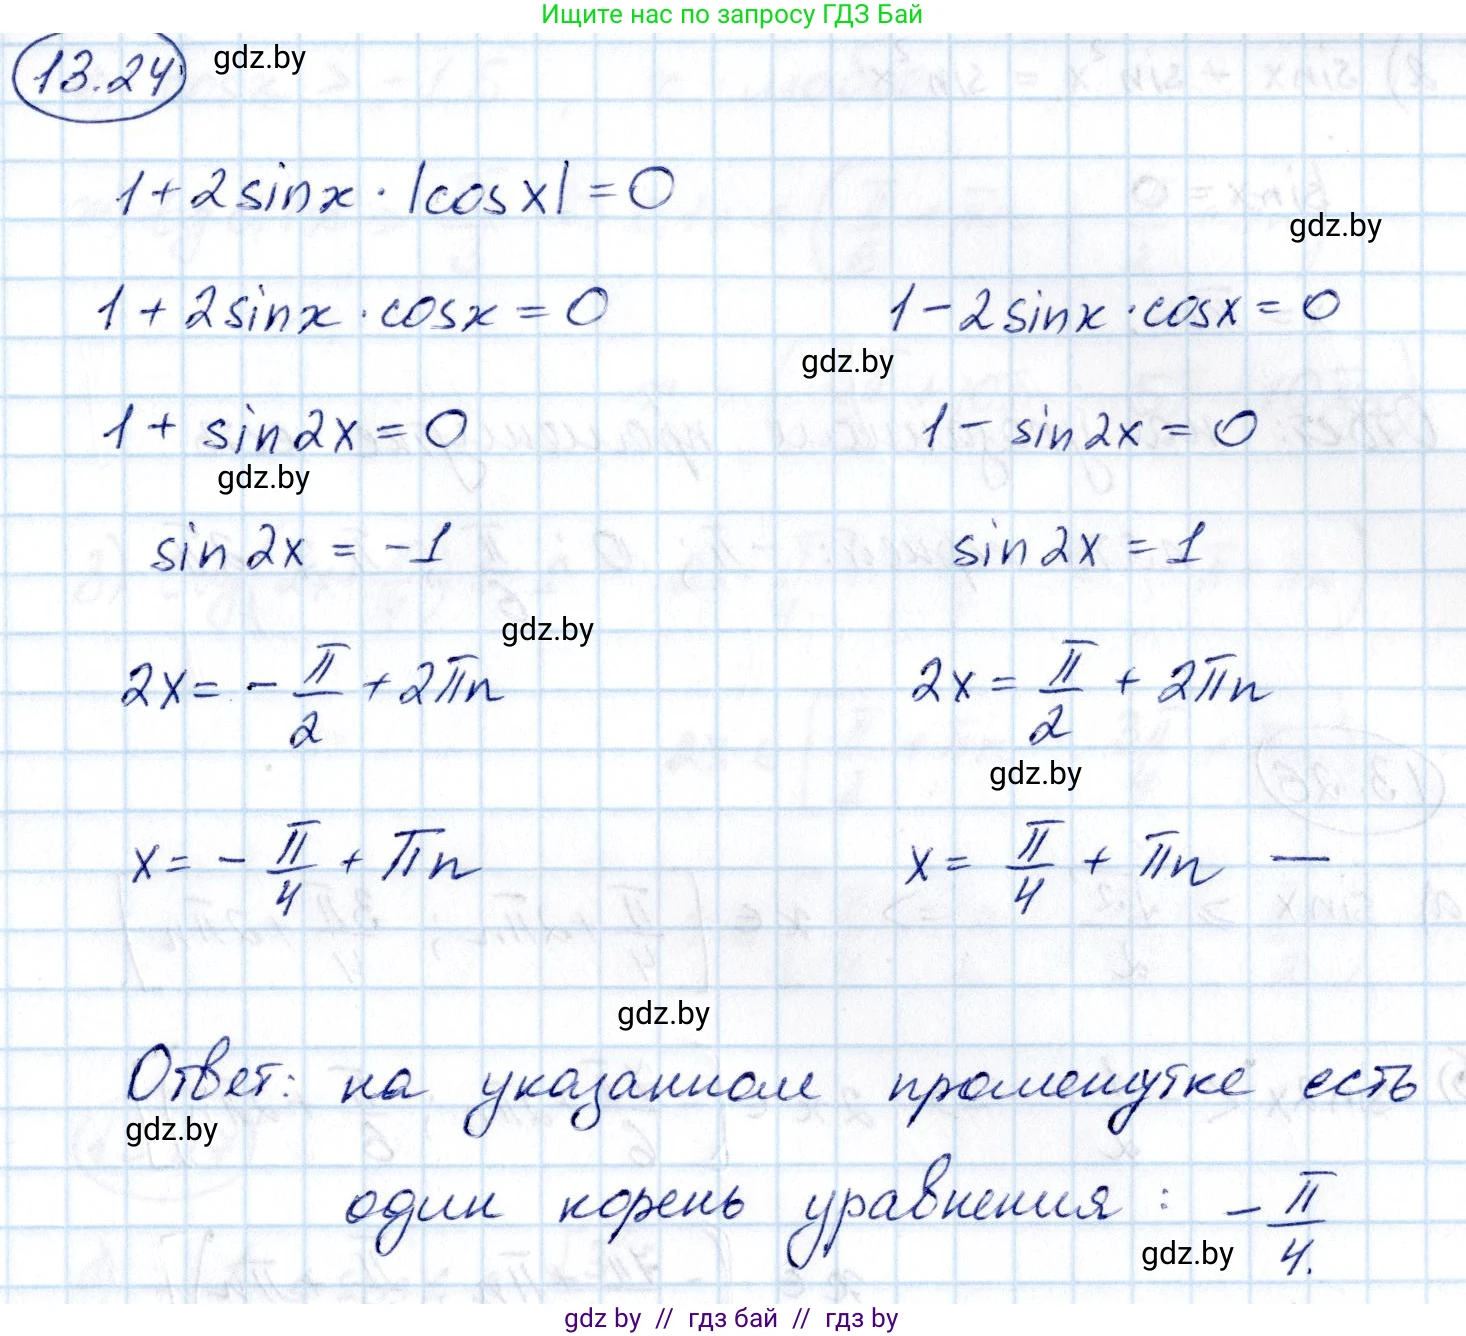 Ищите нас по запросу ГДЗ Бай
13.24 gdz.by
1+2sinx·|cosx|=0
gdz.by
1+2sinx·cosx=0 1-2sinx·cosx=0
gdz.by
1+sin2x=0 1-sin2x=0
gdz.by
sin2x=-1 sin2x=1
gdz.by
2x=-π/2+2πn 2x=π/2+2πn
gdz.by
x=-π/4+πn x=π/4+πn —
gdz.by
Ответ: на указанном промежутке есть
gdz.by
один корень уравнения: -π/4.
gdz.by
gdz by // гдз бай // гдз by